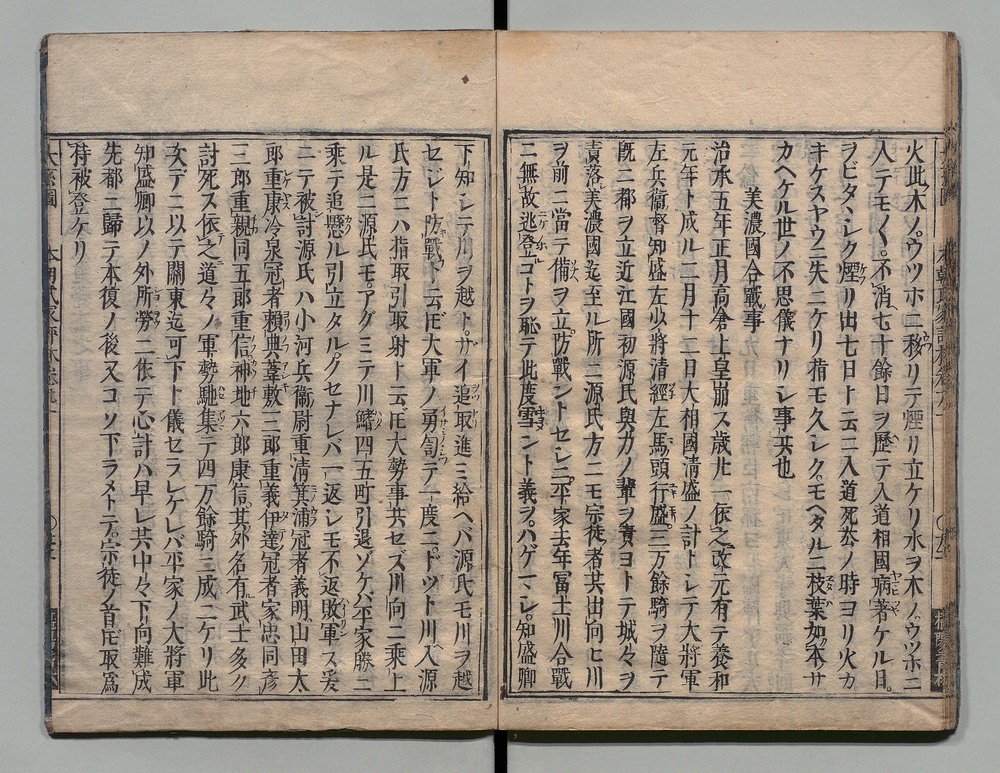 火此木ノウツホニ移リテ煙リ立ケリ水ヲ木ノウツホニ
入テモ不消七十餘日ヲ歴テ入道相國病著ケル日
ヲビタヽシク煙リ出七日ト云ニ入道死去ノ時ヨリ火カ
キケスヤウニ失ニケリ指モ久シクモヘタルニ枝葉如本サ
カヘケル世ノ不思儀ナリシ事共也
美濃國合戰事
治承五年正月高倉上皇崩ス歳廾一依之改元有テ養和
元年ト成ル二月十二日大相國清盛ノ計トシテ大將軍
左兵衞督知盛左少將清經左馬頭行盛三万餘騎ヲ隨テ
既ニ都ヲ立近江國初源氏與力ノ輩ヲ責ヨトテ城々ヲ
責落美濃國迄至ル所ニ源氏方ニモ宗徒者共出向ヒ川
ヲ前ニ當テ備ヲ立防戰ントセシニ平家去年冨士川合戰
ニ無故逃登コトヲ恥テ此度雪ント義ヲハゲマシ知盛卿
下知シテ川ヲ越トサイ追取進ミ給ヘバ源氏モ川ヲ越
セジト防戰ト云ドモ大軍ノ勇匂テ一度ニドツト川ヘ入源
氏方ニハ指取引取射ト云ドモ大勢事共セズ川向ニ乘上
ル是ニ源氏モアグミテ川鰭四五町引退ゾケバ平家勝ニ
乘テ追懸ル引立タルクセナレバ一返シモ不返敗軍ス爰
ニテ被討源氏ハ小河兵衞尉重清箕浦冠者義明山田太
郎重康冷泉冠者頼典葦敷二郎重義伊達冠者家忠同彦
三郎重親同五郎重信神地六郎康信其外名有武士多ク
討死ス依之道々ノ軍勢馳集テ四万餘騎ニ成ニケリ此
次デニ以テ關東迄可下ト儀セラレケレバ平家ノ大將軍
知盛卿以ノ外所勞ニ依テ心計ハ早レ共中々下向難成
先都ニ歸テ本復ノ後又コソ下ラメトテ宗徒ノ首ドモ取爲
持被登ケリ